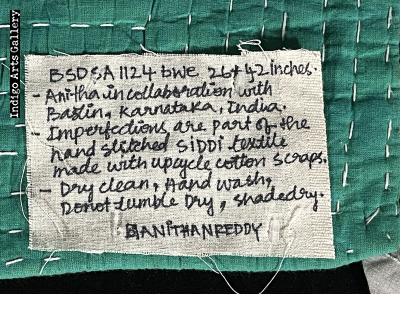 Indigo Arts Gallery
BSD&A 1124 bwe 26+42 inches.
- Anitha in collaboration with
Baslin, Karnataka, India.
- Imperfections are part of the
hand stitched SiDDi textile
made with upcycle cotton scraps.
- Dry clean, Hand wash,
Donot tumble Dry, shadedry.
ANiTHANREDDY